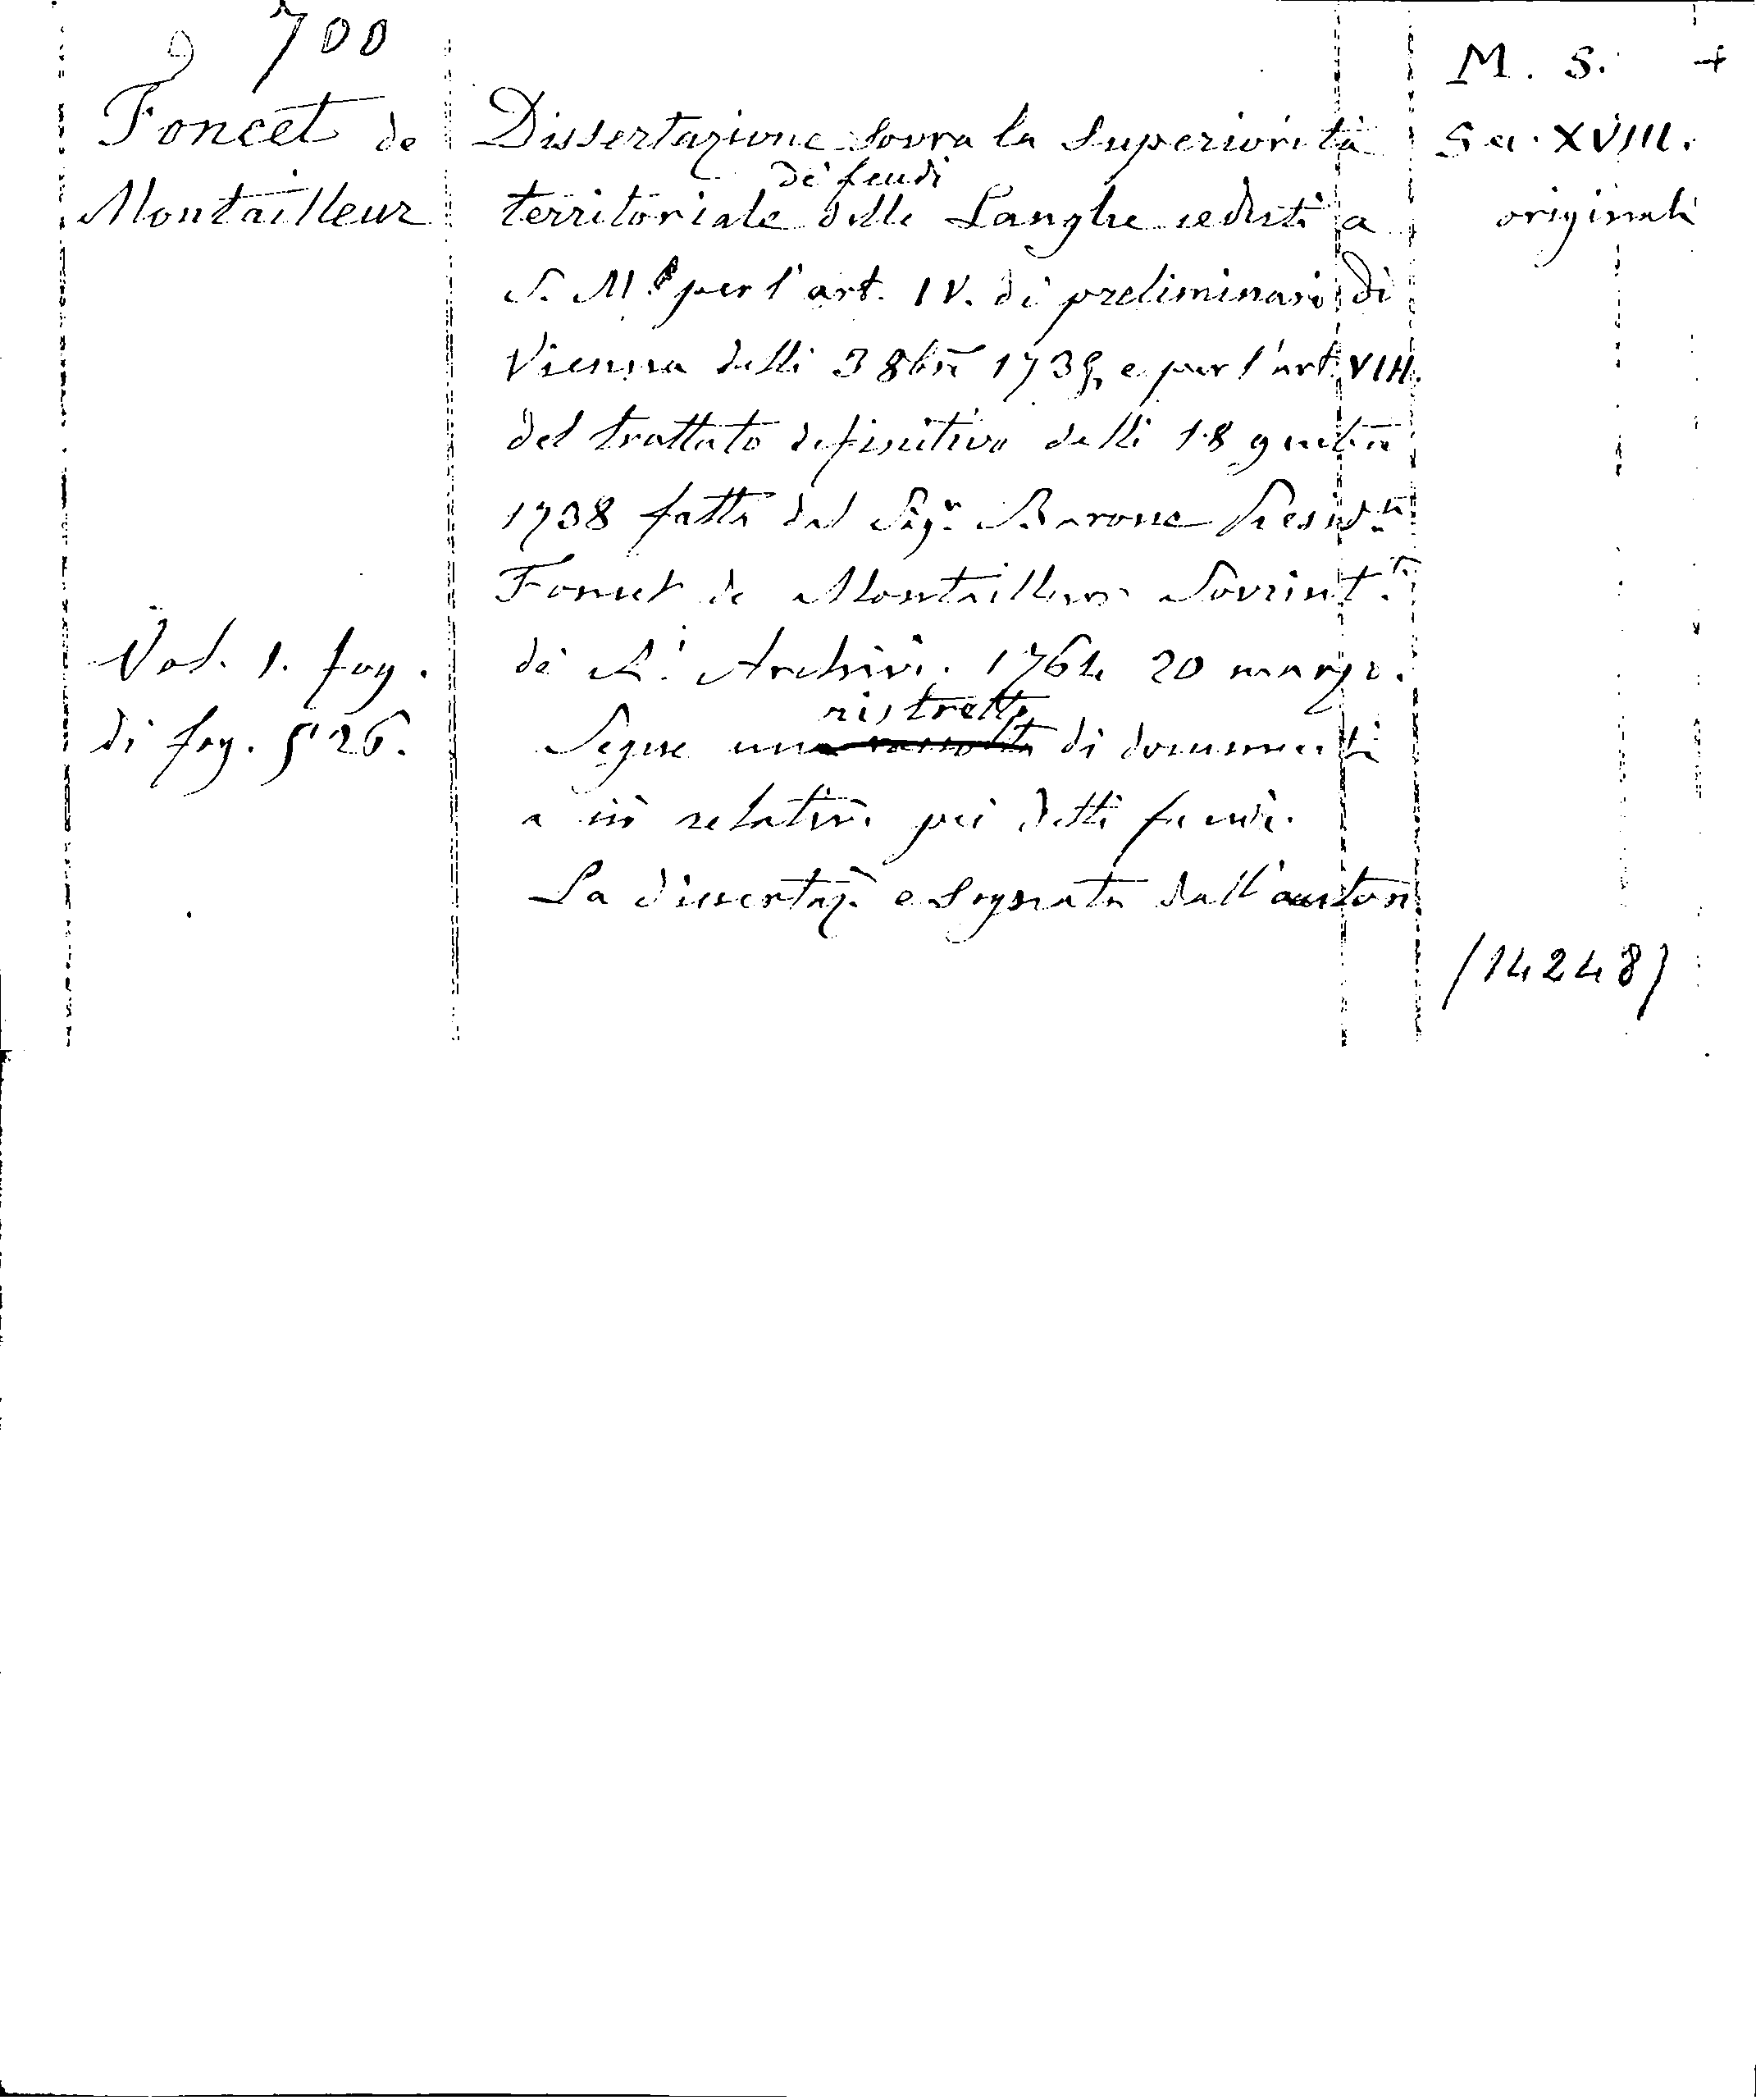 700
Foncet de
Montailleur
Vol. 1. fog.
di fog. 526.
Dissertazione sovra la superiorità
de' feudi
territoriale delle Langhe ceduti a
S. M. per l'art. IV. de' preliminari di
Vienna delli 3 8bre 1735, e per l'art. VIII.
del trattato definitivo delli 18 9mbre
1738 fatta dal Sigr. Barone Presidte
Foncet de Montailleur Sovrint.te
de' Ri. Archivi. 1764 20 marzo.
ristretto
Segue una raccolta di documenti
relativi pei detti feudi.
La dissertaz. e segnata dall'autore
M. S. +
Sec. XVIII.
originale
(14248)